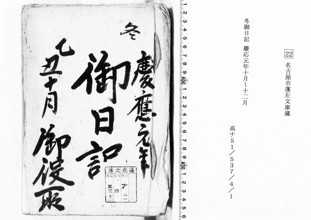 22
名古屋市蓬左文庫蔵
冬御日記 慶応元年十月~十二月
尚ナ51/537/4/1
冬
慶應元年
御日記
乙丑十月
御役所